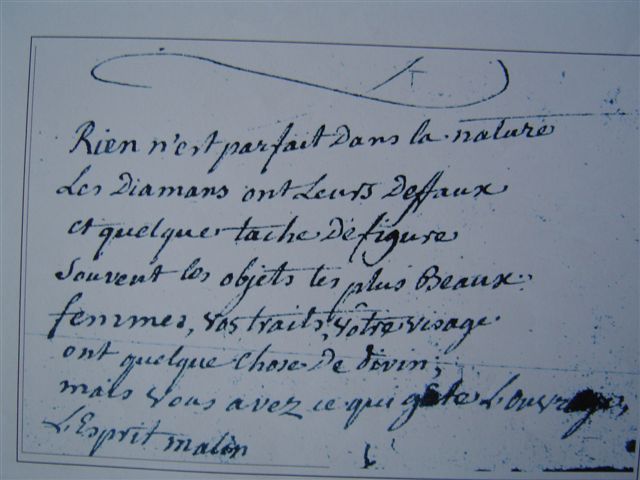 Rien n'est parfait Dans la nature
Les Diamans ont Leurs Deffaux
et quelque tache Defigure
souvent les objets les plus Beaux
femmes, vos traits, vôtre visage
ont quelque chose De divin,
mais vous avez ce qui gâte L'ouvrage,
L'Esprit malin